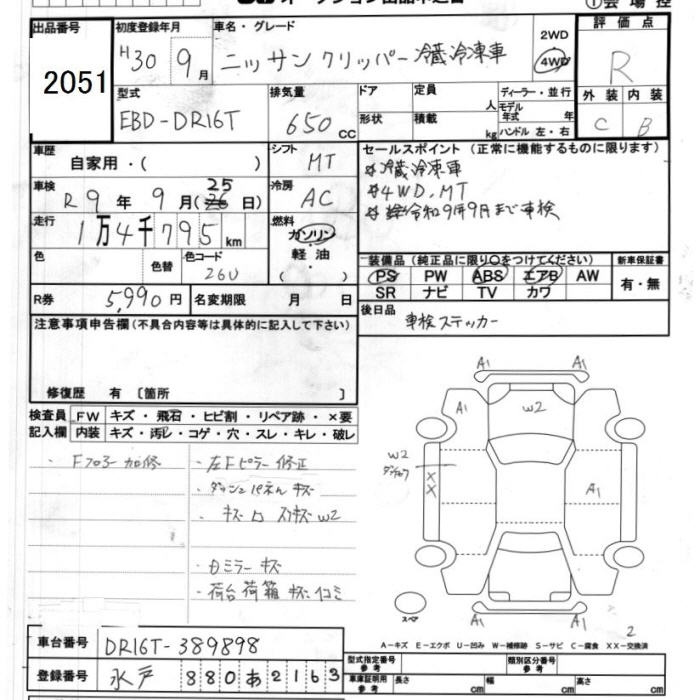 出品番号 2051
初度登録年月 H30 9月
車名・グレード ニッサン クリッパー 冷蔵冷凍車
2WD
4WD
評価点 R
外装 内装
C B
型式 EBD-DR16T
排気量 650 cc
ドア
形状
定員 人
積載 kg
ディーラー・並行
モデル年式 年
ハンドル 左・右
車歴 自家用・( )
シフト MT
車検 R9年9月(25日)
冷房 AC
走行 1万4千795km
燃料 ガソリン・軽油
( )
色
色替
色コード 26U
R券 5,990円
名変期限 月 日
セールスポイント(正常に機能するものに限ります)
冷蔵冷凍車
4WD、MT
令和9年9月まで車検
装備品(純正品に限り○をつけてください)
PS PW ABS エアB AW
SR ナビ TV カワ
新車保証書
有・無
後日品 車検ステッカー
注意事項申告欄(不具合内容等は具体的に記入して下さい)
修復歴 有 〔箇所 〕
検査員記入欄
FW キズ・飛石・ヒビ割・リペア跡・×要
内装 キズ・汚レ・コゲ・穴・スレ・キレ・破レ
・Fフロアー加修
・左Fピラー修正
・ダッシュパネルキズ
・Dミラーキズ
・荷台荷箱キズ凹コミ
A1 A1
A1 W2 A1
W2
XX
A1
スペア
A1 A1
2
A-キズ E-エクボ U-凹み W-補修跡 S-サビ C-腐食 XX-交換済
車台番号 DR16T-389898
登録番号 水戸 880あ2163
型式指定番号 参考
類別区分番号 参考
車庫証明用 参考
長さ cm
幅 cm
高さ cm